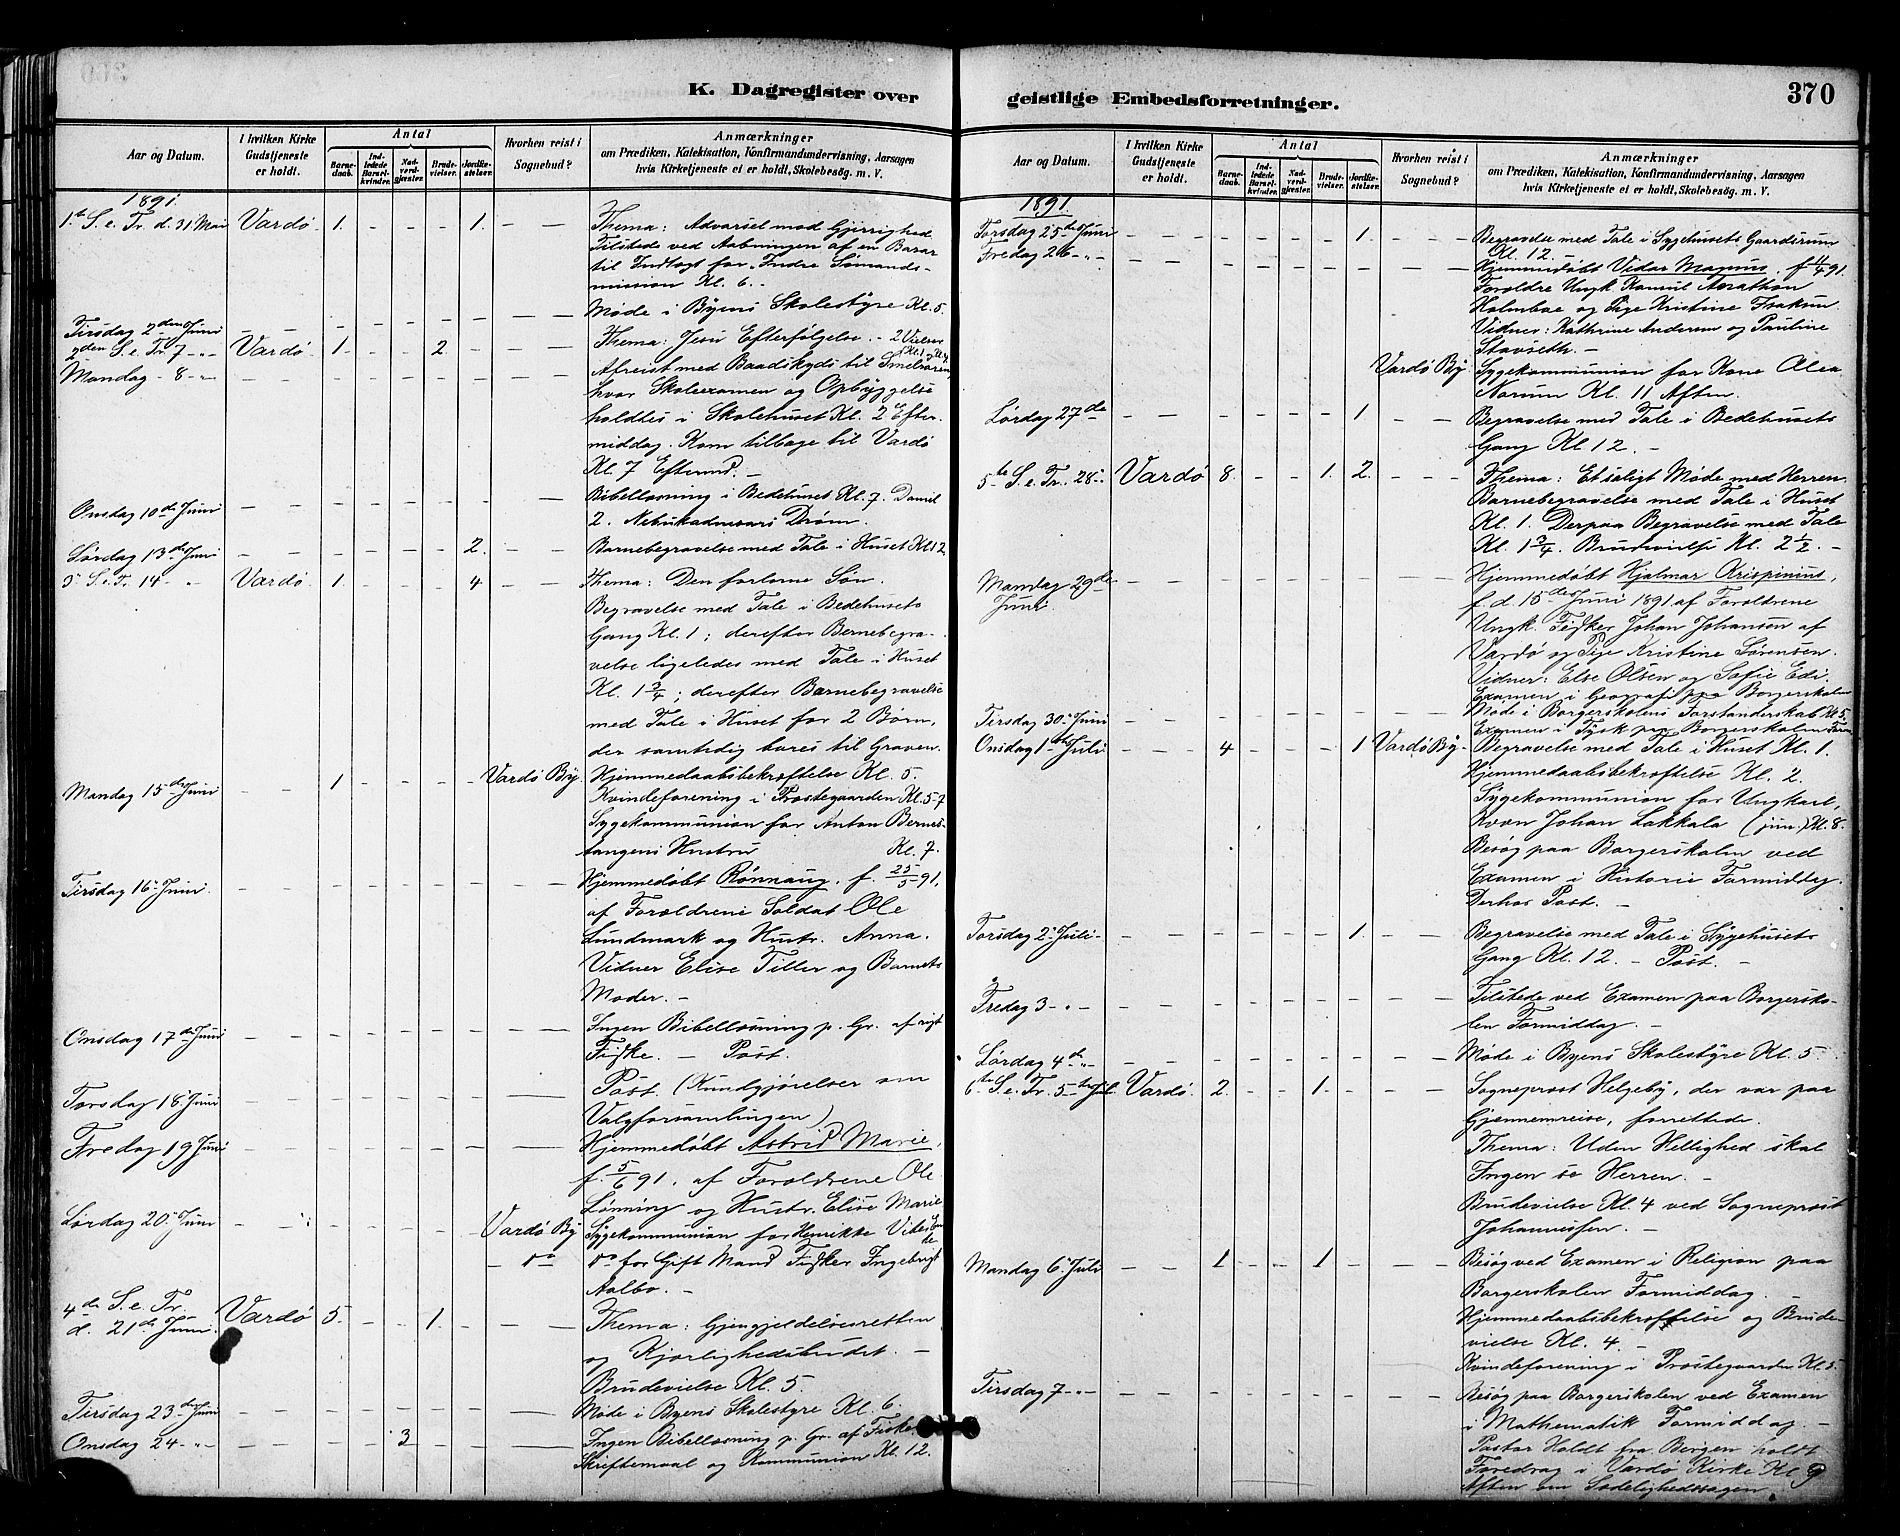 K. Dagregister over
Aar og Datum.
I hvilken Kirke Gudstjeneste er holdt.
Antal
Barnedaab.
Indledede Barselkvinder.
Nadverdgjæster.
Brudevielser.
Jordfæstelser.
Hvorhen reist i Sognebud?
Anmærkninger
om Prædiken, Katekisation, Konfirmandundervisning, Aarsagen
hvis Kirketjeneste ei er holdt, Skolebesøg. m. V.
1891.
1ste S. e. Tr. d. 31 Mai Vardø 1. - - - 1. - - Thema: Advarsel mod Gjerrighed
Tilstede ved Aabningen af en Basar
til Indtægt for "Indre Sømands-
mission Kl. 6. -
Tirsdag 2den Juni - - - - - - - - - Møde i Byens Skolestyre Kl. 5.
2den S. e. Tr. 7 - " - Vardø. 1. - - 2. - - - Thema: Jesu Efterfølgelse. - 2 Vielser
Mandag - 8 - " - - - - - - - - - - Afreist med Baadskyds til
hvor Skoleexamen og Opbyggelse
holdtes i Skolehuset Kl. 2 Efter-
middag. Kom tilbage til Vardø
Kl. 7 Efterm. -
Onsdag 10de Juni - - - - - - - - - Bibellæsning i Bedehuset Kl. 7. Daniel
2. Nebukadnesars Drøm.
Lørdag 13de Juni - - - - - - 2. - - Barnebegravelse med Tale i Huset Kl 12
3. S. e. Tr. 14 - " Vardø. 1. - - - 4 - - Thema: Den forlorne Søn.
Begravelse med Tale i Bedehusets
Gang Kl. 1; derefter Bernebegra-
velse ligeledes med Tale i Huset
Kl. 1 3/4; derefter Barnebegravelse
med Tale i Huset for 2 Børn,
der samtidig bares til Graven.
Mandag 15de Juni - - 1 - - - - Vardø By. Hjemmedaabsbekræftelse Kl. 5.
Kvindeforening i Præstegaarden Kl. 5-7
Sygekommunion for Anton Bernes-
tangens Hustru Kl. 7.
Tirsdag 16. Juni. - - - - - - - - - Hjemmedøbt Rønnaug. f. 25/5 91,
af Forældrene Soldat Ole
Lundmark og Hustr. Anna.
Vidner Elise Tiller og Barnets
Moder. -
Onsdag 17de Juni - - - - - - - - - Ingen Bibellæsning p. Gr. af rigt
Fiske. - Post.
Torsdag 18. Juni - - - - - - - - Post. (Kundgjørelser om
Valgforsamlingen)
Fredag 19 Juni - - - - - - - - Hjemmedøbt Astrid Marie,
f. 5/6 91, af Forældrene Ole
Lønning og Hustr. Elise Marie
Lørdag 20. Juni - - - - - - - Vardø By Sygekommunion for Henrikke
- do do for Gift Mand Fisker Ingebrigt
Aalbo. -
4de S. e. Tr.
d. 21de Juni. Vardø 5. - - 1. - - - Thema: Gjengjældelsesretten
og Kjærlighedsbudet. -
Brudevielse Kl. 5.
Tirsdag 23de Juni - - - - - - - - - Møde i Byens Skolestyre Kl. 6.
Onsdag 24 - " - - - - - 3 - - - - Ingen Bibellæsning p. Gr. af Fiske
Skriftemaal og Kommunion Kl. 12.
geistlige Embedsforretninger.
370
Aar og Datum.
I hvilken Kirke Gudstjeneste er holdt.
Antal
Barnedaab.
Indledede Barselkvinder.
Nadverdgjæster.
Brudevielser.
Jordfæstelser.
Hvorhen reist i Sognebud?
Anmærkninger
om Prædiken, Katekisation, Konfirmandundervisning, Aarsagen
hvis Kirketjeneste ei er holdt, Skolebesøg m. V.
1891.
Torsdag 25de Juni - - - - - - 1. - - Begravelse med Tale i Sygehusets Gaardsrum
Kl. 12. -
Fredag 26 - " - - - - - - - - - - Hjemmedøbt Vidar Magnus. f 11/4 91.
Forældre Ungk Konsul
Holmboe og Pige Kristine
Vidner: Kathrine Andersen og Pauline
Stavseth. -
Vardø By. Sygekommunion for Kone Alea
Norum Kl. 11 Aften.
Lørdag 27de - - - - - - 1 - - Begravelse med Tale i Bedehusets
Gang Kl. 12. -
5te S. e. Tr. 28. " Vardø 8. - - 1. 2. - - - Thema: Et saligt Møde med Herren.
Barnebegravelse med Tale i Huset
Kl. 1. Derpaa Begravelse med Tale
Kl. 1 3/4. Brudevielse Kl. 2 1/2. -
Mandag 29de
Juni. - - - - - - - - - - Hjemmedøbt Hjalmar Krispinius,
f. d. 15de Juni 1891 af Forældrene
Ungk. Fisker Johan Johansen af
Vardø og Pige Kristine Sørensen.
Vidner: Else Olsen og Sofie
Examen i Geografi paa Borgerskolen
Tirsdag 30. Juni - - - - - - - - - Møde i Borgerskolens Forstanderskab Kl. 5.
Examen i Tysk paa Borgerskolen
Onsdag 1ste Juli - - 4 - - - 1 Vardø By - Begravelse med Tale i Huset Kl. 1.
Hjemmedaabsbekræftelse Kl. 2.
Sygekommunion for Ungkarl,
Kvæn Johan Lakkala (jun.) Kl. 8.
Besøg paa Borgerskolen ved
Examen i Historie Formiddag.
Derhos Post. -
Torsdag 2. Juli - - - - - - 1. - - Begravelse med Tale i Sygehusets
Gang Kl. 12. - Post. -
Fredag 3 - " - - - - - - - - - - Tilstede ved Examen paa Borgersko-
len Formiddag. -
Lørdag 4de - " - - - - - - - - - - Møde i Byens Skolestyre Kl. 5
6te S. e. Tr. 5te Jul. Vardø. 2. - - 1. - - - Sogneprøst Helgeby, der var paa
Gjennemreise, forrettede.
Thema: Uden Hellighed skal
Ingen se Herren. -
Brudevielse Kl. 4 ved Sogneprøst
Johannessen. -
Mandag 6. Juli - - 1 - - 1 - - - Besøg ved Examen i Religion paa
Borgerskolen Formiddag. -
Hjemmedaabsbekræftelse og Brude-
vielse Kl. 4. -
Kvindeforening i Præstegaarden Kl. 5.
Tirsdag 7 - " - - - - - - - - - - Besøg paa Borgerskolen ved Examen
i Mathematik Formiddag. -
Pastor Holdt fra Bergen holdt
Foredrag i Vardø Kirke Kl 9
Aften om Sædelighedssagen.